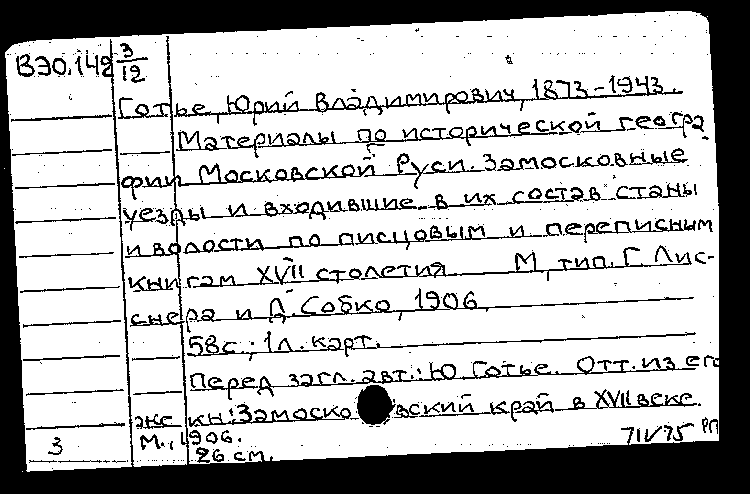 ВЭО.142 3/12
Готье, Юрий Владимирович, 1873-1943.
Материалы по исторической геогра
фии Московской Руси. Замосковные
уезды и входившие в их состав станы
и волости по писцовым и переписным
книгам XVII столетия М, тип. Г. Лис-
снера и Д. Собко, 1906.
58с.; 1л. карт.
Перед загл. авт.: Ю. Готье. Отт. из его
же кн: Замоско вский край в XVII веке.
М., 1906.
3 26 см. 71V75 РП